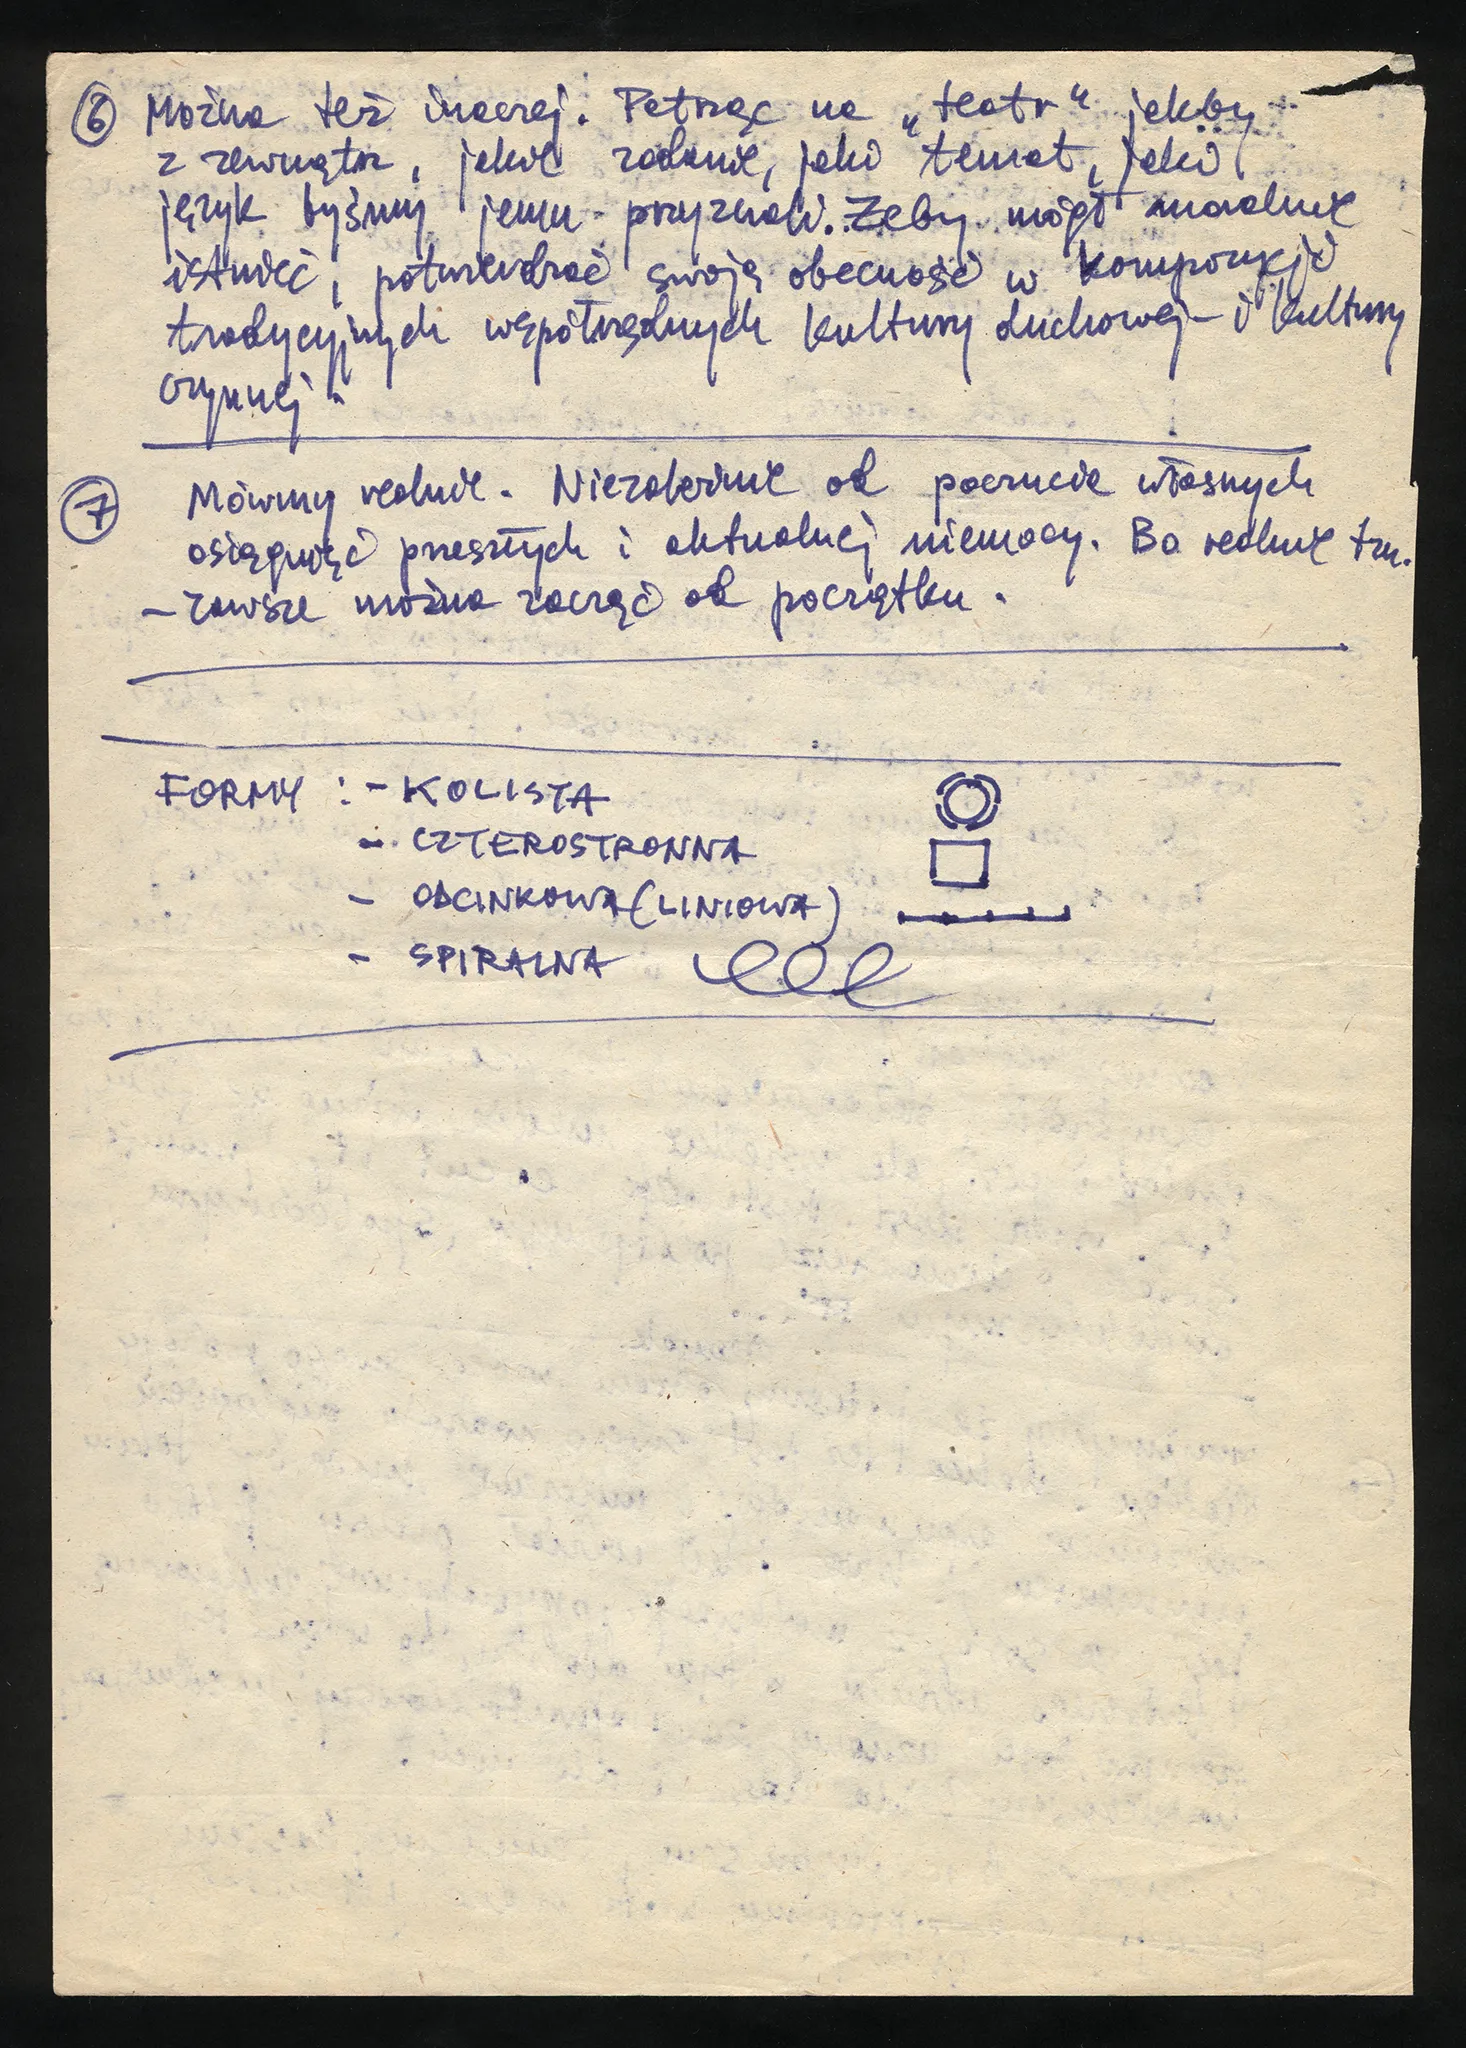 6 Można też inaczej. Patrząc na „teatr" jakby
z zewnątrz, jakie zadanie, jaki temat, jaki
język byśmy jemu przyznali. Żeby mógł realnie
istnieć, potwierdzać swoją obecność w kompozycji
tradycyjnych współrzędnych kultury duchowej - i kultury
czynnej.
7 Mówmy realnie. Niezależnie od poczucia własnych
osiągnięć przeszłych i aktualnej niemocy. Bo realnie tzn.
- zawsze można zacząć od początku.
FORMY : - KOLISTA
- CZTEROSTRONNA
- ODCINKOWA (LINIOWA)
- SPIRALNA